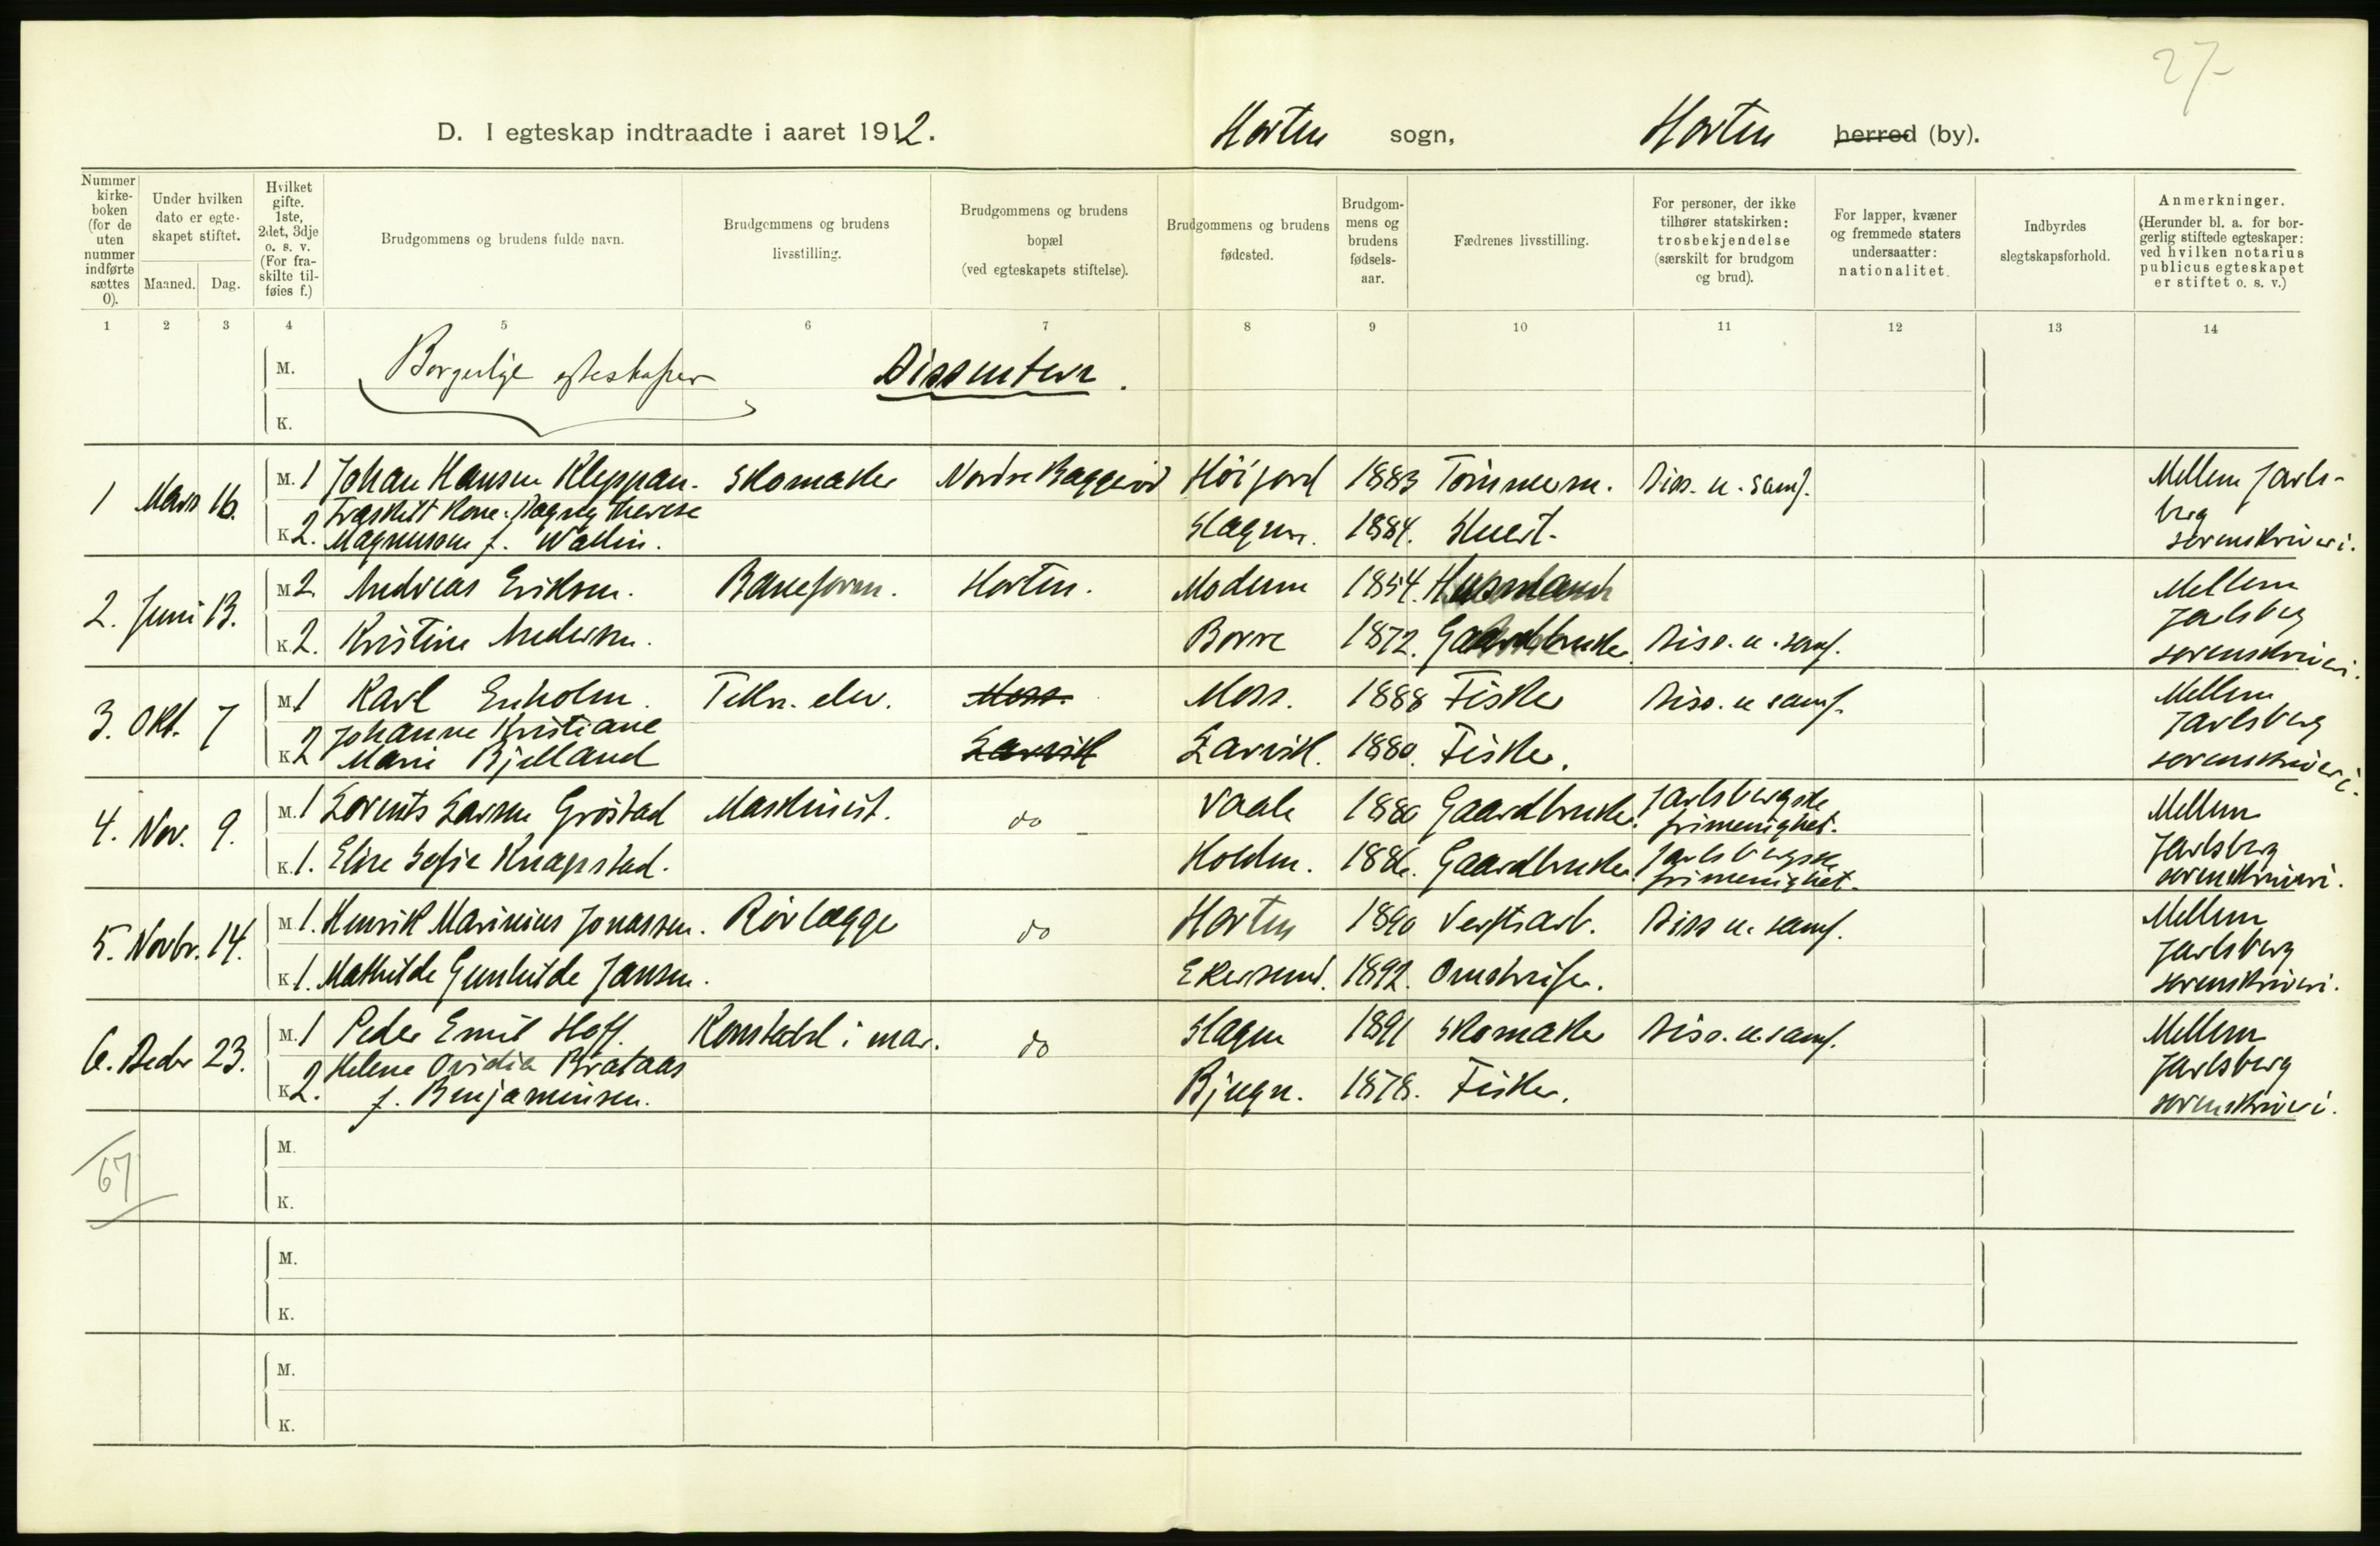 27-
D. I egteskap indtraadte i aaret 1912. Horten sogn, Horten herred (by).
Nummer kirke-boken (for de uten nummer indførte sættes 0).
Under hvilken dato er egte-skapet stiftet.
Maaned. Dag.
Hvilket gifte. 1ste, 2det, 3dje o. s. v. (For fra-skilte til-føies f.)
Brudgommens og brudens fulde navn.
Brudgommens og brudens livsstilling.
Brudgommens og brudens bopæl (ved egteskapets stiftelse).
Brudgommens og brudens fødested.
Brudgom-mens og brudens fødsels-aar.
Fædrenes livsstilling.
For personer, der ikke tilhører statskirken: trosbekjendelse (særskilt for brudgom og brud).
For lapper, kvæner og fremmede staters undersaatter: nationalitet.
Indbyrdes slegtskapsforhold.
Anmerkninger. (Herunder bl. a. for bor-gerlig stiftede egteskaper: ved hvilken notarius publicus egteskapet er stiftet o. s. v.)
1 2 3 4 5 6 7 8 9 10 11 12 13 14
M. Borgerlige egteskaper Dissentere.
K.
1 Mars 16. M. 1 Johan Hansen Kleppan. Skomaker Nordre Baggerød Høijord 1883 Tømmerm. Diss. u. samf. Mellem Jarls-
berg
sorenskriveri.
Fraskilt kone: Dagny Therese
K 2. Magnusson f. Wallin. Slagen. 1884. Stuert.
2. Juni 13. M 2. Andreas Eriksen. Baneform. Horten. Modum 1854. Husmand Mellem
Jarlsberg
sorenskriveri.
K. 2. Kristine Andersen. Borre 1872. Gaardbruker Diss. u. samf.
3. Okt. 7 M 1 Karl Enholm. Tekn. elev. Moss. Moss. 1888 Fisker Diss. u samf. Mellem
Jarlsberg
sorenskriveri.
Johanne Kristiane
K 2 Marie Bjelland Larvik Larvik. 1880. Fisker.
4. Nov. 9. M. 1 Lorents Larsen Grøstad Maskinist. do Vaale 1880 Gaardbruker. Jarlsbergske
frimenighet. Mellem
Jarlsberg
sorenskriveri.
K. 1. Elise Sofie Knapstad. Holden. 1886. Gaardbruker. Jarlsbergske
frimenighet.
5. Novbr. 14. M 1. Henrik Marinius Jonassen. Rørlægger do Horten 1890 Verftsarb. Diss u. samf. Mellem
Jarlsberg
sorenskriveri.
K 1. Mathilde Gunhilde Jansen. Ekersund. 1892.
6. Decbr 23. M. 1 Peder Emil Hoff. Konstabel i mar. do Slagen 1891 Skomaker Diss. u. samf. Mellem
Jarlsberg
sorenskriveri.
Helene Ovidia Brataas
K 2. f. Benjaminsen. Bjugn. 1878. Fisker.
67
M.
K.
M.
K.
M.
K.